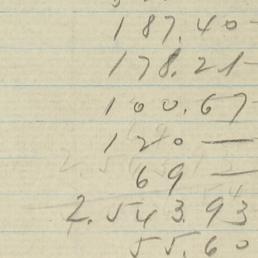 187.40
178.21
100.67
120 —
69 —
2.543.93
55.60